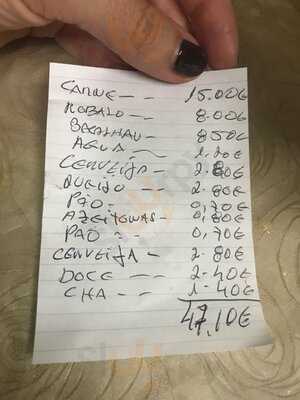 CARNE - - 15.00€
ROBALO - - 8.00€
BACALHAU - 8.50€
AGUA - - 1.20€
CERVEIJA - - 2.80€
QUEIJO - - 2.80€
PÃO - 0,70€
AZEITONAS - 0,80€
PÃO - - 0,70€
CERVEIJA - - 2.80€
DOCE - - 2.40€
CHA - - 1.40€
47,10€